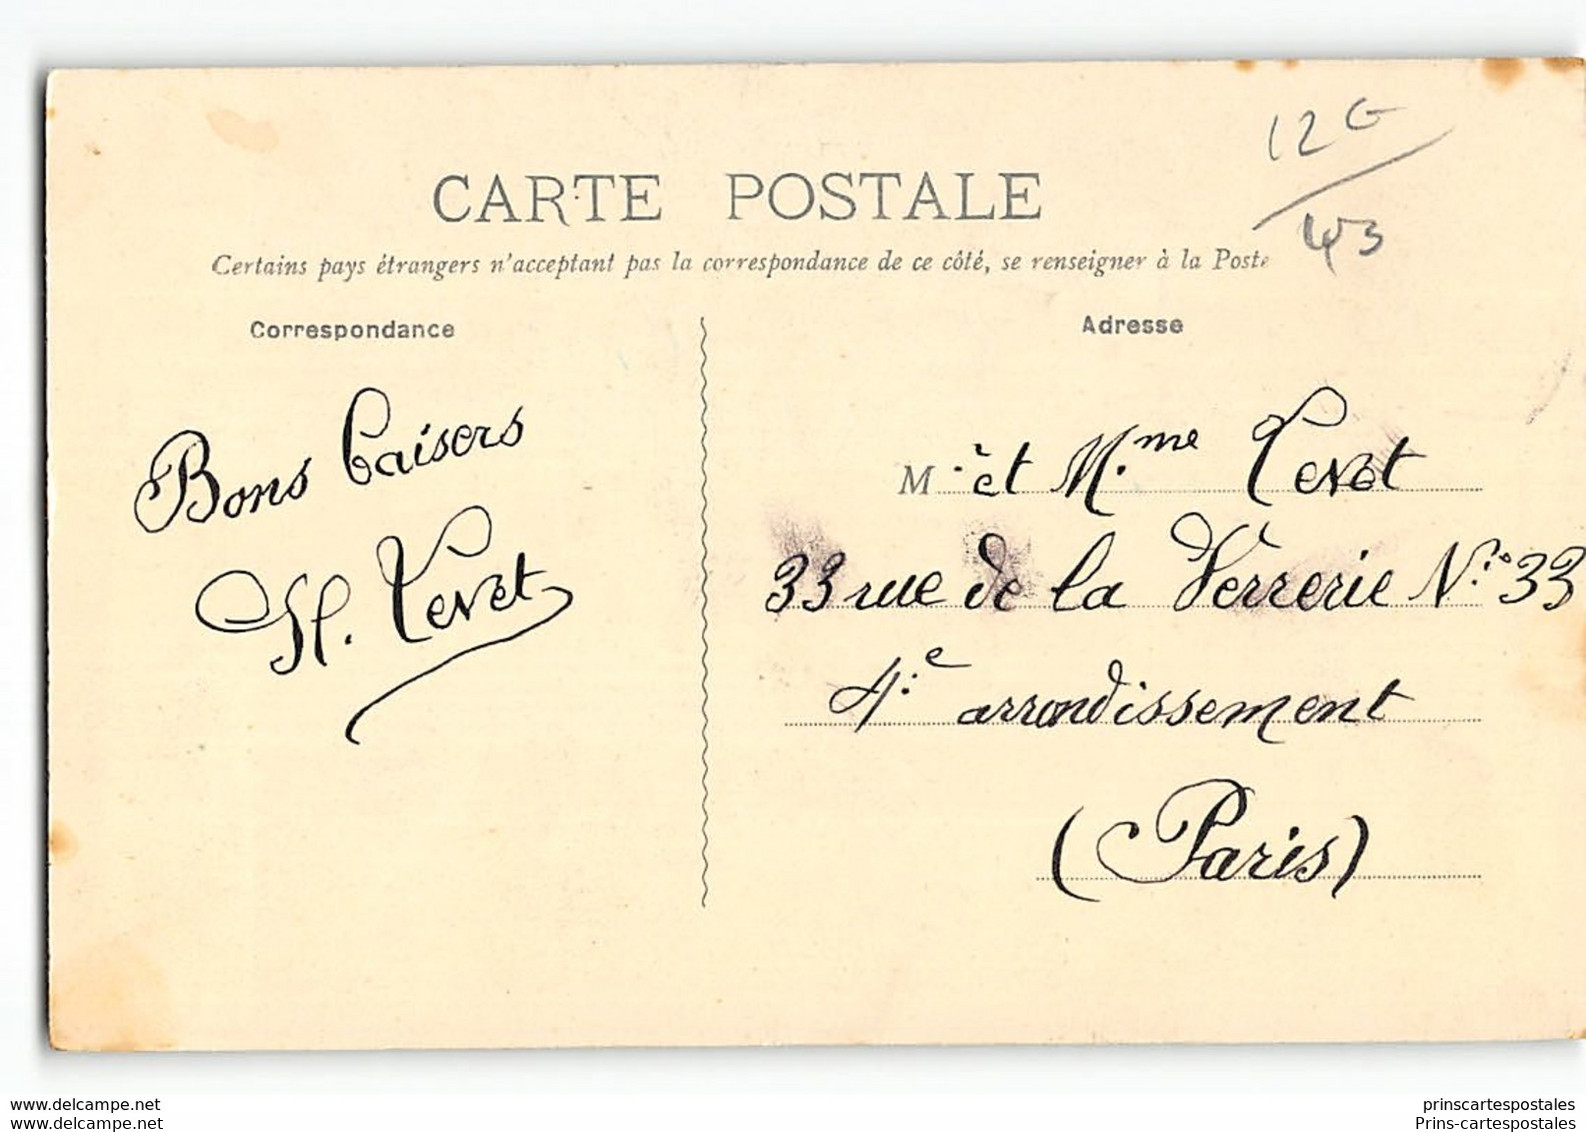 12 G
43
CARTE POSTALE
Certains pays étrangers n'acceptant pas la correspondance de ce côté, se renseigner à la Poste
Correspondance
Bons baisers
H. Tevet
Adresse
M. et M.me Tevet
33 rue de la Verrerie N.º 33
4.e arrondissement
(Paris)
www.delcampe.net
www.delcampe.net
prinscartespostales
Prins-cartespostales